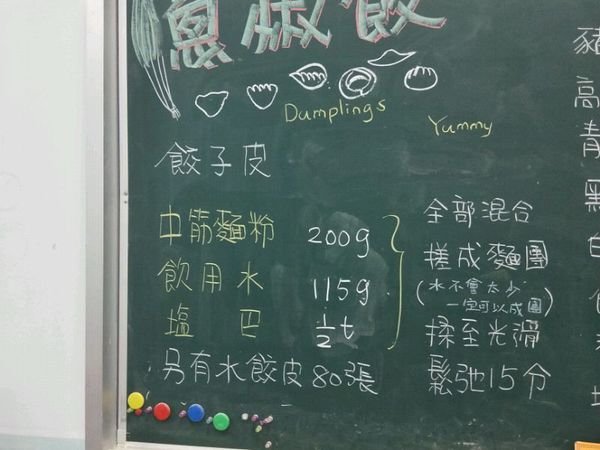 蔥
餃
Dumplings
Yummy
餃子皮
中筋麵粉 200g
飲用水 115g
塩巴 ½t
另有水餃皮80張
全部混合
搓成麵團
(水不會太少
一定可以成團)
揉至光滑
鬆弛15分
豬
高
青
黑
白